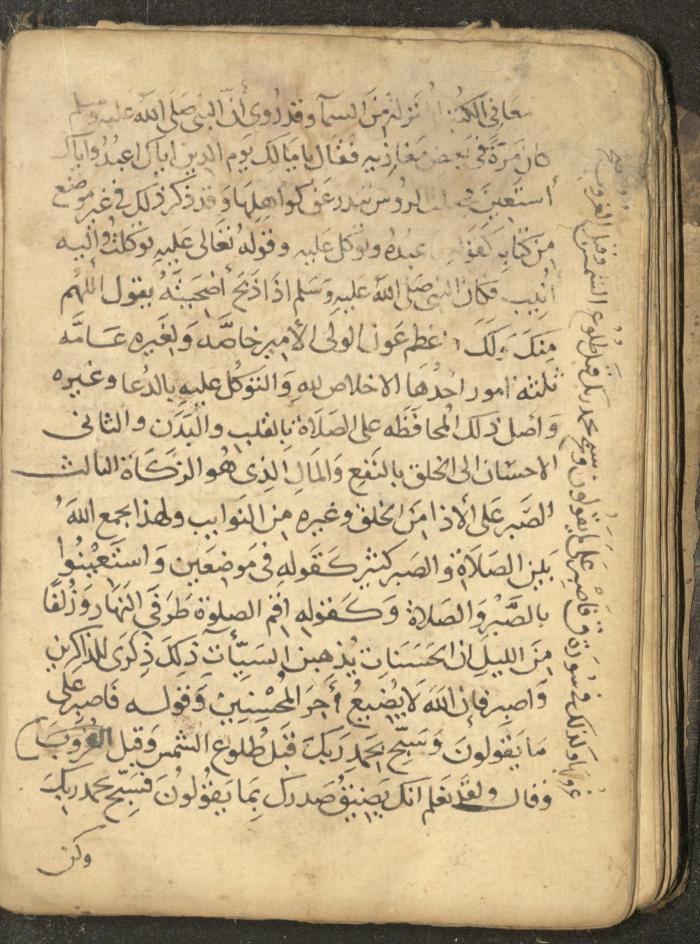 معاني الكتب المنزلة من السمآ وقد روى أنّ النبي صَلى الله عَليه وسلم
كان مَرّة في بَعض مغازيه فقال يا مَالك يَوم الدين اياك اعبُدُ واياك
أستَعين فجعلت الروس تندر عَن كواهلِهَا وقد ذكر ذلك في غير مَوضع
مِن كتابه كقوله فاعبدُه وتوكل عليه وقوله تعَالى عَليهِ توكلتُ واليه
أنيب فكان النبي صَلى الله عَليهِ وَسَلم اذا ذبَح أضحيتَهُ يقول اللهُم
مِنكَ وَلَكَ واعظم عَون لولي الأمر خاصَّه وَلغَيره عَامَّه
ثلثة امور احدُهَا الاخلاص للهِ وَالتوكل عليهِ بالدُعا وغيره
وَاصل ذلك المحافظه على الصَلاة بالقلب والبَدَن والثاني
الاحسَان الى الخلق بالنَفع وَالمَال الذِى هُو الزكَاة الثالث
الصَبر عَلى الأذا مِنَ الخلق وغيره مِن النَوايب ولهذا يجمع اللهُ
بَين الصَلاةِ والصَبر كثير كقَوله فى مَوضعَين وَاستَعِينُوا
بالصَّبْر وَالصَلاة وَكقوله اقم الصلوة طَرَفَي النَهار وَزُلفًا
مِنَ الليلِ ان الحَسَنَاتِ يُذهبن السَيِّآتِ ذلِكَ ذِكرَى للذاكرين
وَاصبر فإن اللهَ لا يُضيعُ أجرَ المُحسِنِين وَقوله فَاصبر على
مَا يَقولونَ وَسَبّح بحَمدِ رَبكَ قَبل طُلوع الشمس وَقبل الغُروب
وقال ولقد نعلم انك يَضيقُ صَدرك بمَا يَقُولُونَ فسَبّح بحمد ربك
وكن
غروبها وكذلك في سُورَة ق فاصْبر عَلى ما يقولون وسبح بحمد ربك قبل طلوع الشمس وقبل الغروب